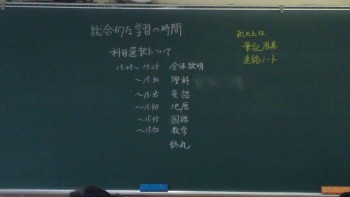 総合的な学習の時間
科目選択について
15:25〜15:29 全体説明
〜15:30 理科
〜15:35 英語
〜15:40 地歴
〜15:45 国語
〜15:50 数学
終礼
筆記用具
連絡ノート